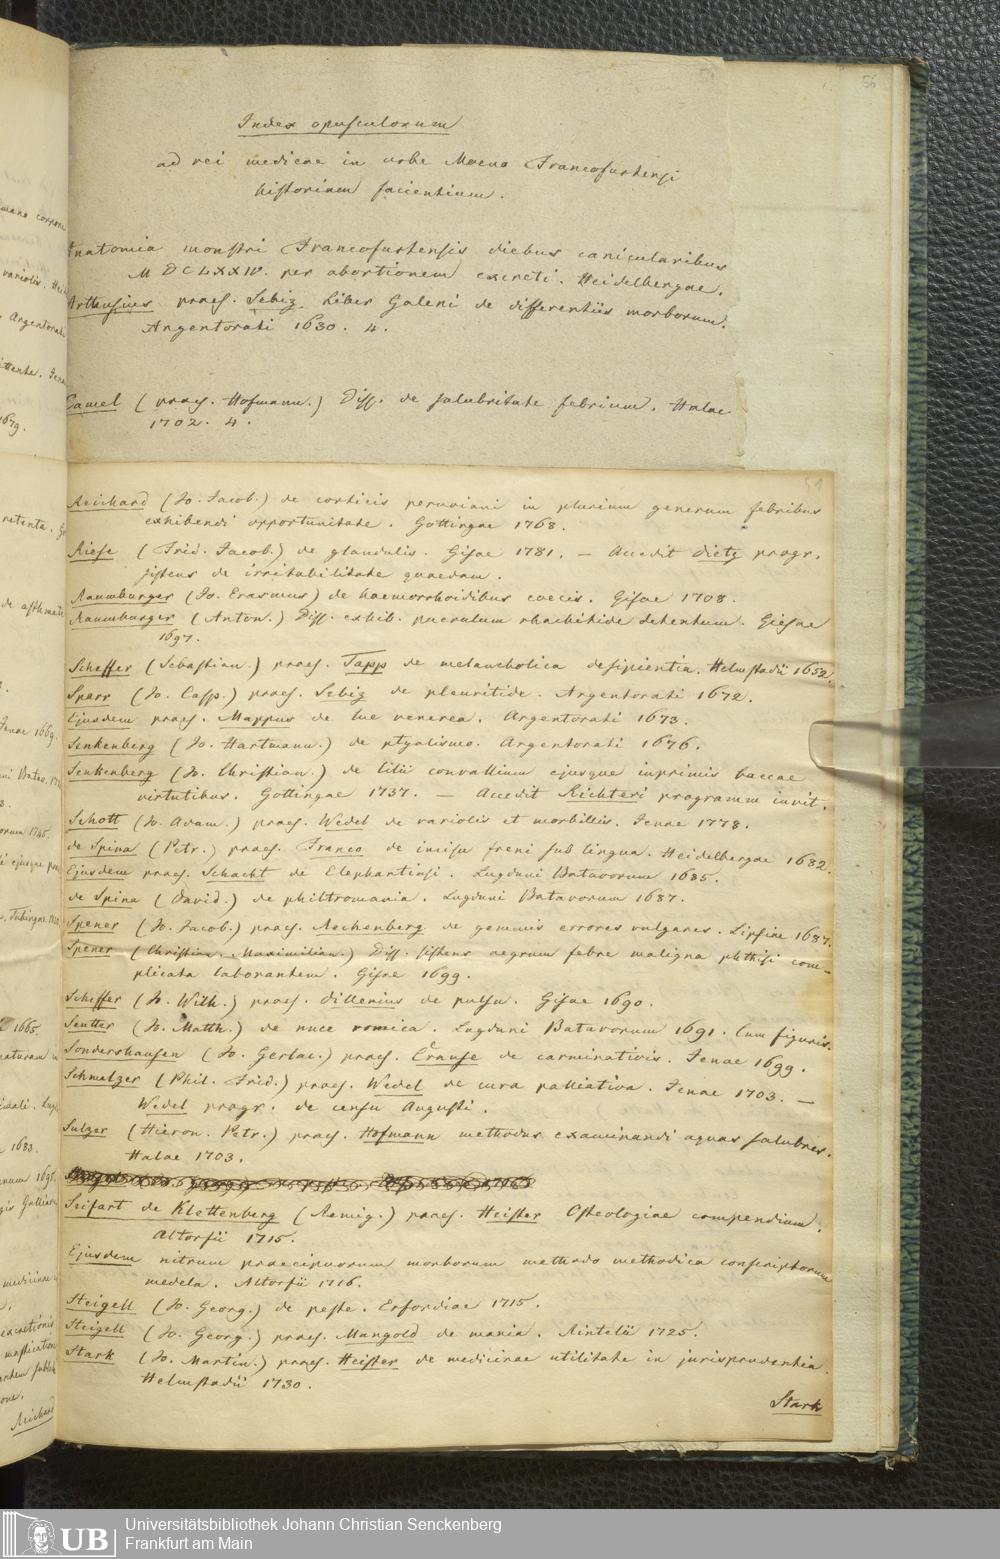 56
Index opusculorum
ad rei medicae in urbe Moeno Francofurtensi
historiam facientium.
Anatomia monstri Francofurtensis diebus canicularibus
MDCLXXIV. per abortionem excreti. Heidelbergae.
praes. Sebiz Liber Galeni de differentiis morborum.
Argentorati 1630. 4.
(praes. Hofmann.) Diss. de salubritate febrium. Halae
1702. 4.
Reichard (Jo. Jacob.) de corticis peruviani in plurium generum febribus
exhibendi opportunitate. Gottingae 1768.
Riese (Frid. Jacob.) de glandulis. Gissae 1781. — Accedit Dietz progr.
sistens de irritabilitate quaedam.
Raumburger (Jo. Erasmus) de haemorrhoidibus coecis. Gissae 1708.
Raumburger (Anton.) Diss. exhib. puerulum rhachitide detentum. Giessae
1697.
Scheffer (Sebastian.) praes. Tapp de melancholica desipientia. Helmstadii 1652.
Sparr (Jo. Casp.) praes. Sebiz de pleuritide. Argentorati 1672.
Ejusdem praes. Mappus de lue venerea. Argentorati 1673.
Senkenberg (Jo. Hartmann.) de ptyalismo. Argentorati 1676.
Senkenberg (Jo. Christian.) de lilii convallium ejusque inprimis baccae
virtutibus. Gottingae 1737. — Accedit Richteri programm invit.
Schott (Jo. Adam.) praes. Wedel de variolis et morbillis. Jenae 1778.
de Spina (Petr.) praes. Franco de incisu freni sub lingua. Heidelbergae 1682.
Ejusdem praes. Schacht de Elephantiasi. Lugduni Batavorum 1685.
de Spina (David.) de philtromania. Lugduni Batavorum 1687.
Spener (Jo. Jacob.) praes. Rechenberg de gemmis errores vulgares. Lipsiae 1687.
Spener (Christian. Maximilian.) Diss. sistens aegrum febre maligna phthisi com-
plicata laborantem. Gissae 1699.
Scheffer (Jo. Wilh.) praes. Dillenius de pulsu. Gissae 1690.
Seutter (Jo. Matth.) de nuce vomica. Lugduni Batavorum 1691. Cum figuris.
Sondershausen (Jo. Gerlac.) praes. Crause de carminativis. Jenae 1699.
Schmelzer (Phil. Frid.) praes. Wedel de cura palliativa. Jenae 1703. —
Wedel progr. de censu Augusti.
Sulzer (Hieron. Petr.) praes. Hofmann methodus examinandi aquas salubres.
Halae 1703.
Seifart de Klettenberg (Remig.) praes. Heister Osteologiae compendium.
Altorfii 1715.
Ejusdem nitrum praecipuorum morborum methodo methodica conscriptorum
medela. Altorfii 1716.
Steigell (Jo. Georg.) de peste. Erfordiae 1715.
Steigell (Jo. Georg.) praes. Mangold de mania. Rintelii 1725.
Stark (Jo. Martin.) praes. Heister de medicinae utilitate in jurisprudentia
Helmstadii 1730.
Stark
UB
Universitätsbibliothek Johann Christian Senckenberg
Frankfurt am Main